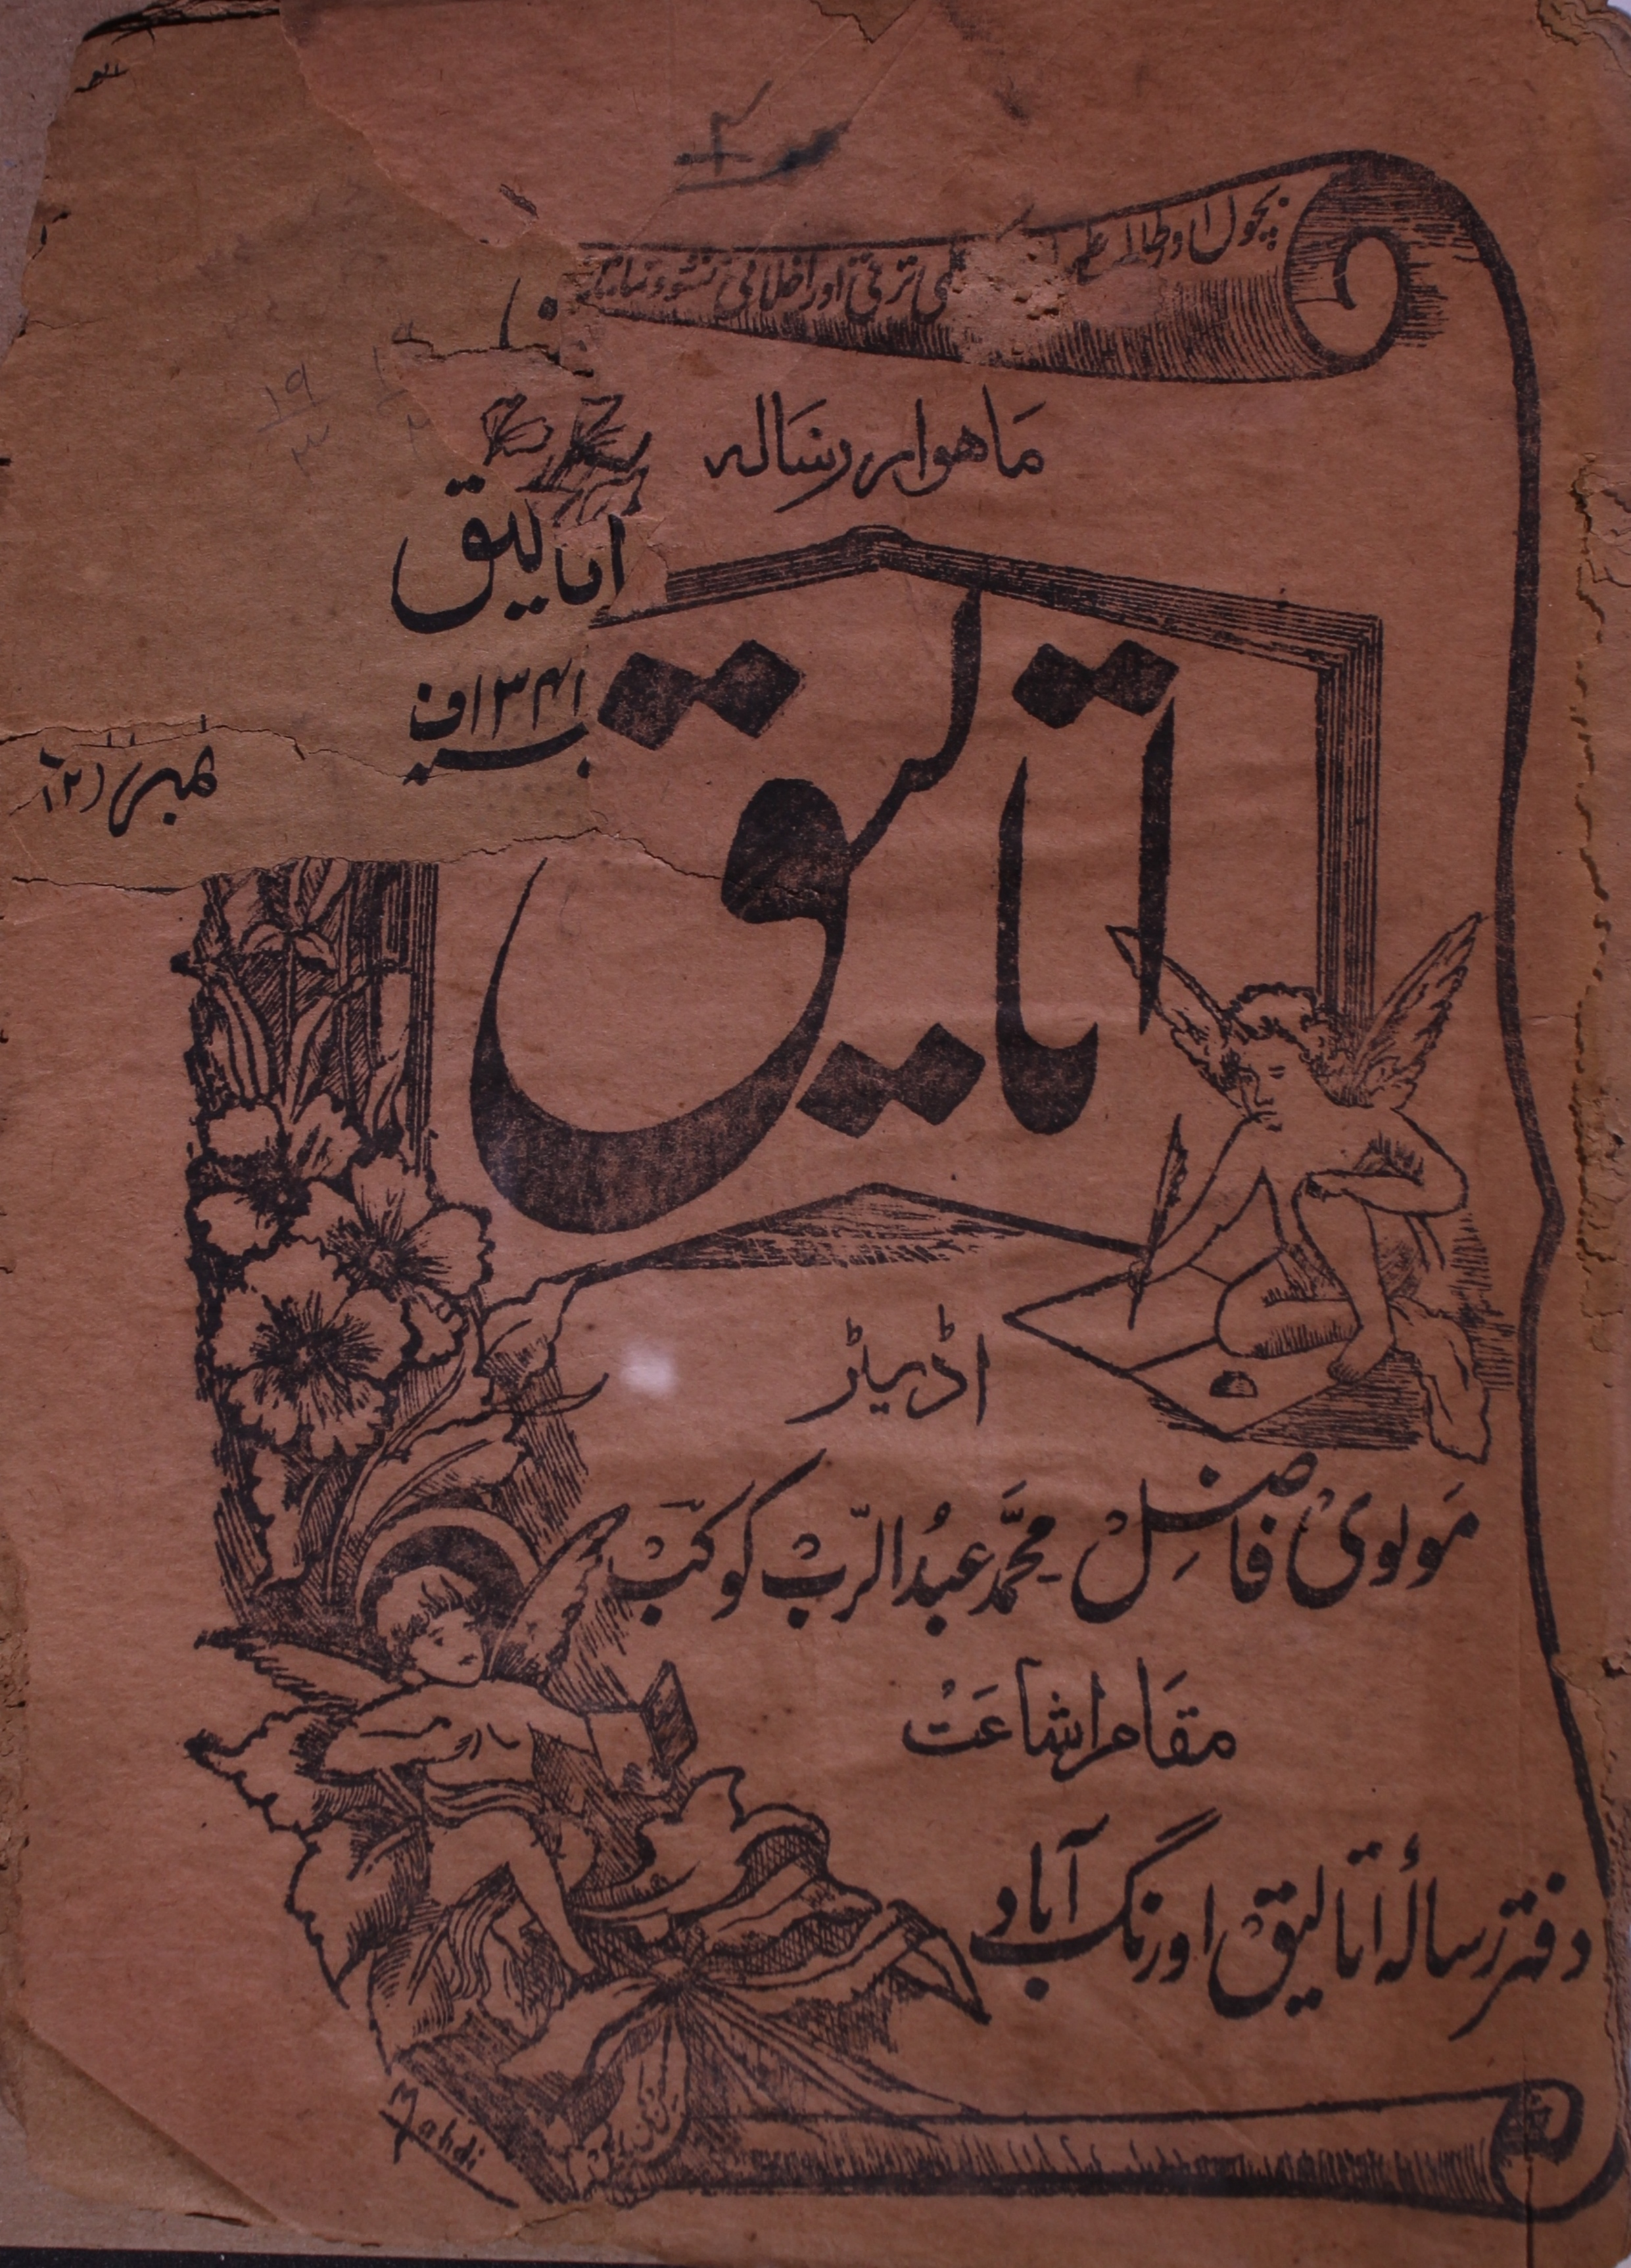 بچوں اور طالب
علمی ترقی اور اخلاقی نشوونما
ماہوار رسالہ
اتالیق
۱۳۴۱ف
نمبر (۲)
اتالیق
اڈیٹر
مولوی فاضل محمد عبدالرب کوکب
مقام اشاعت
دفتر رسالۂ اتالیق اورنگ آباد
Mahdi